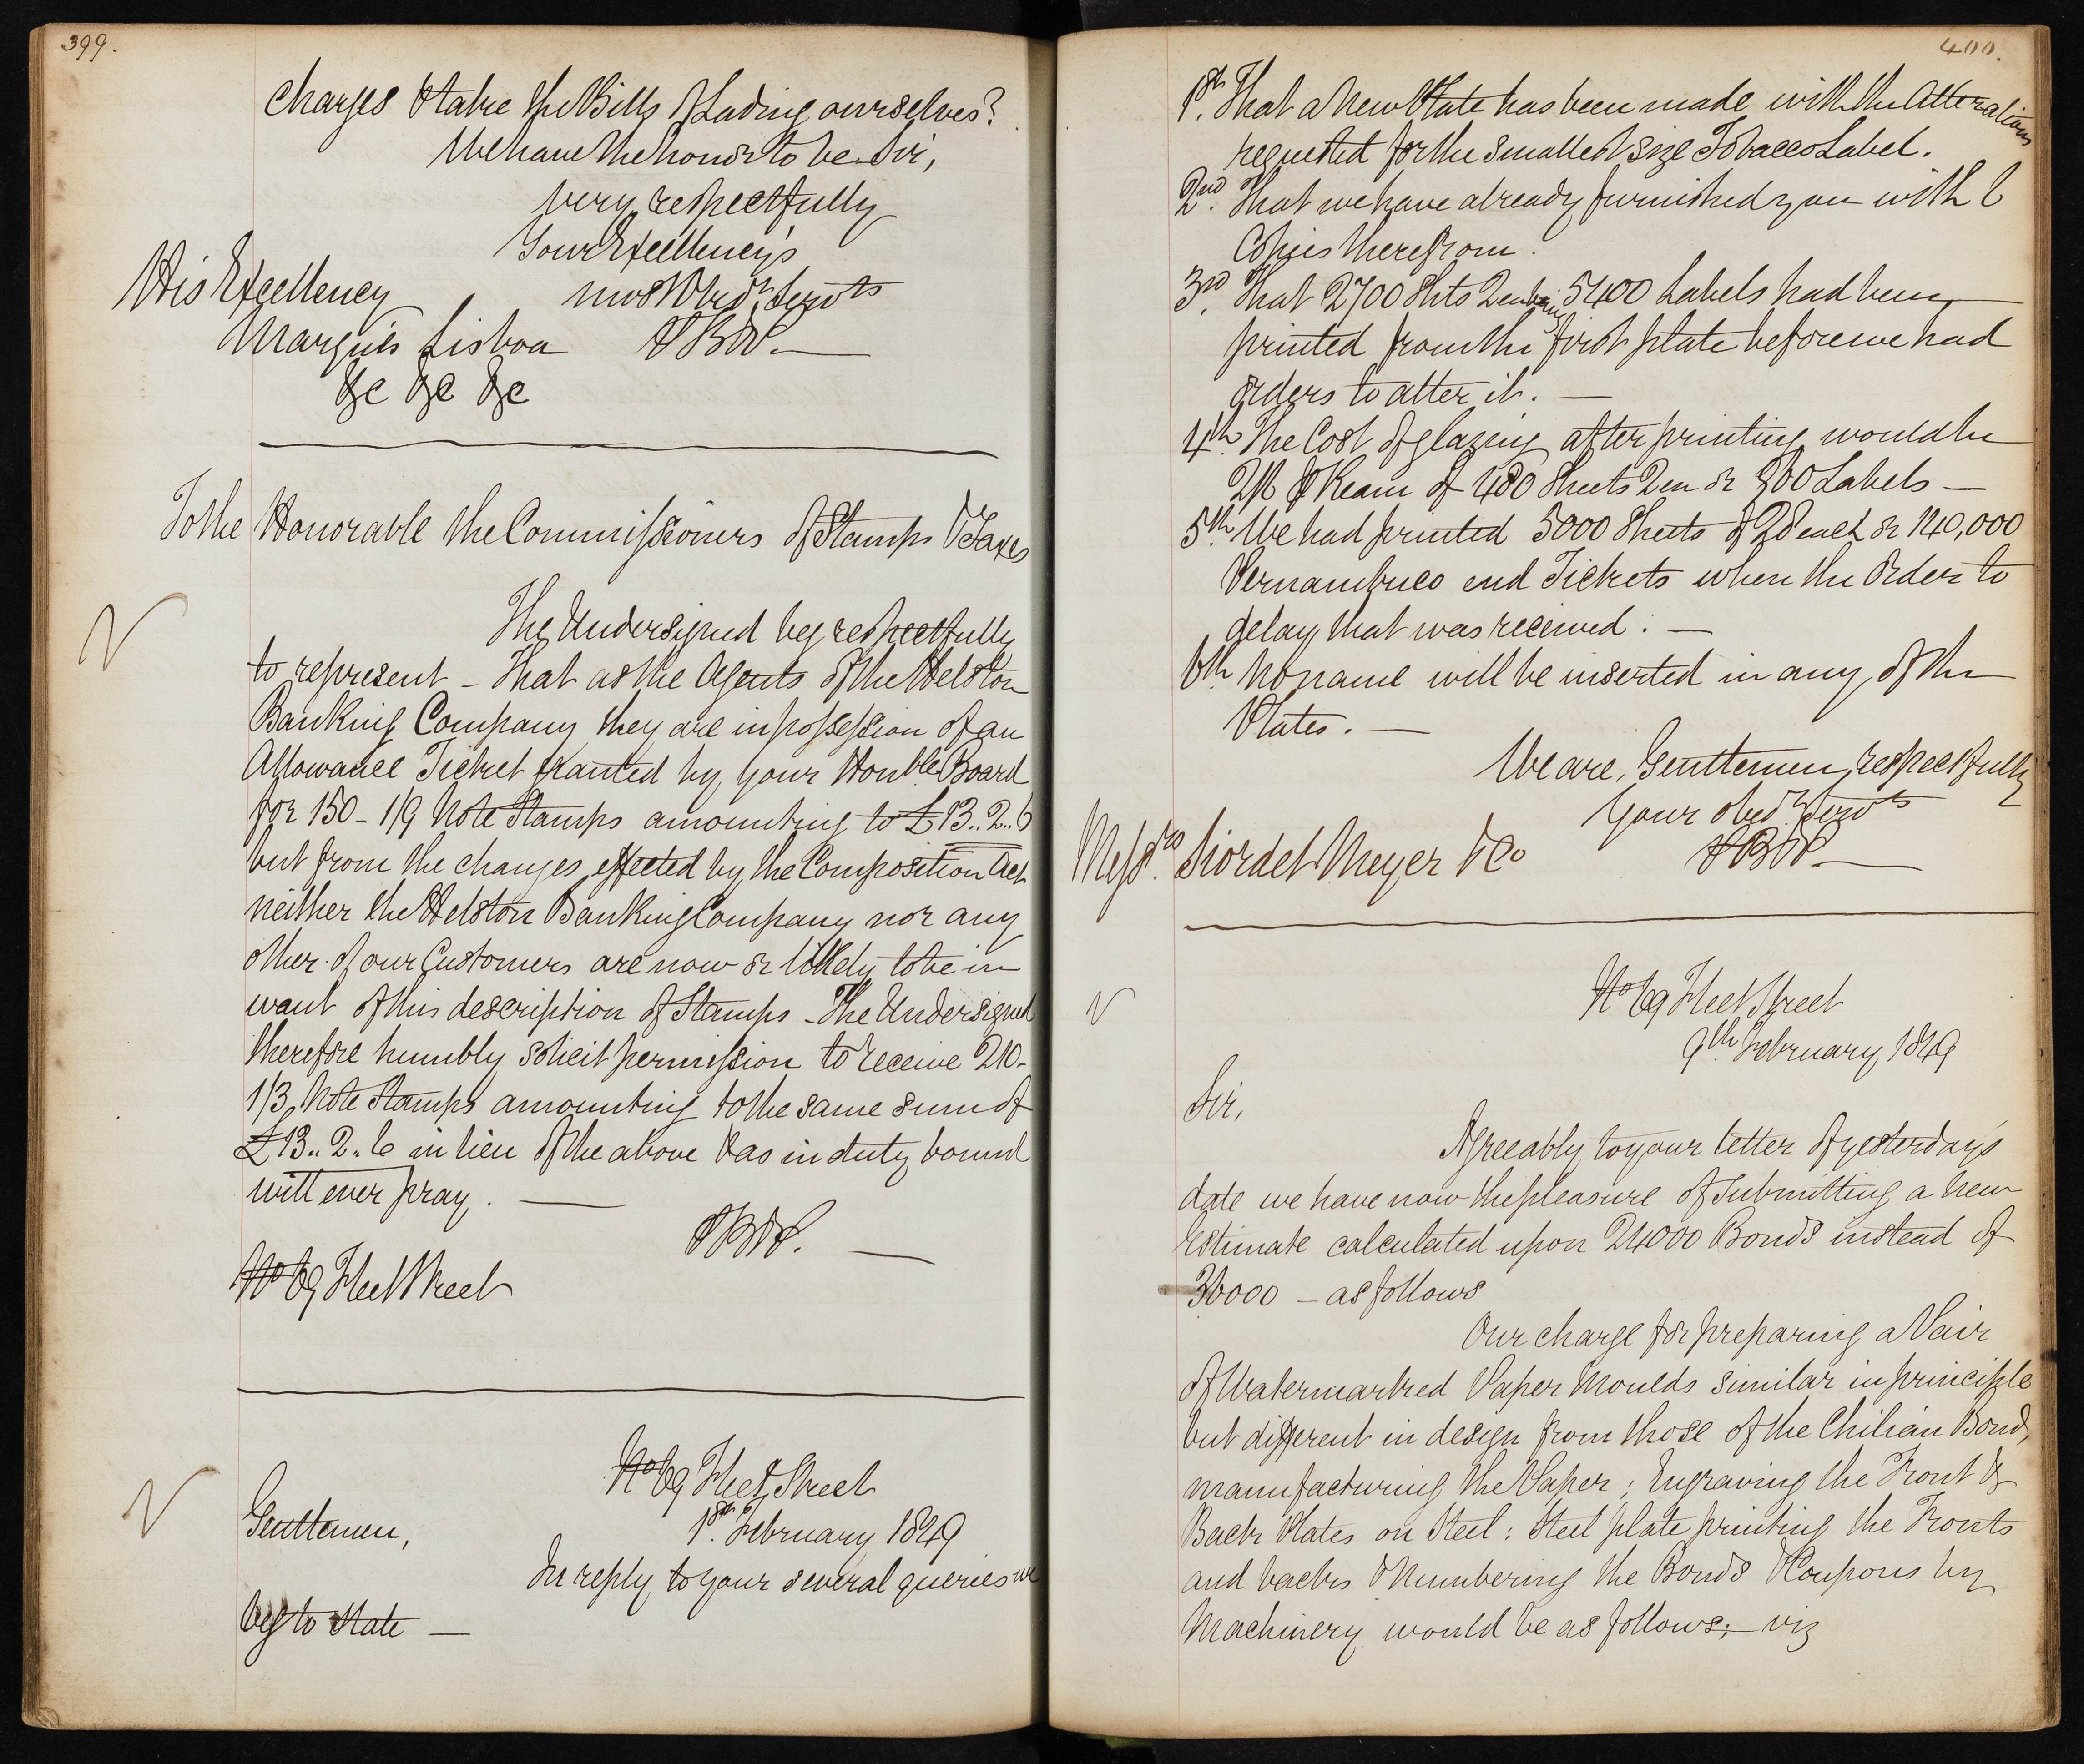 399.
Charges & take the Bills of Lading ourselves?
We have the honor to be Sir,
very respectfully
Your Excellency's
His Excellency most Obedt. Servts
Marquis Lisboa PB&P.—
&c &c &c
To the Honorable the Commissioners of Stamps & Taxes
The Undersigned beg respectfully
to represent – That as the Agents of the Helston
Banking Company they are in possession of an
Allowance Ticket granted by your Honble. Board
for 150 – 1/9 Note Stamps amounting to £13..2..6
but from the changes effected by the Composition Act
neither the Helston Banking Company nor any
other of our Customers are now or likely to be in
want of this description of Stamps – The Undersigned
therefore humbly solicit permission to receive 210–
1/3 Note Stamps amounting to the same sum of
£13..2..6 in lieu of the above & as in duty bound
will ever pray. —
PB&P. —
No 69 Fleet Street
No 69 Fleet Street
Gentlemen, 1st. February 1849
In reply to your several queries we
beg to state —
400.
1st. That a New Plate has been made with the Alterations
requested for the smallest size Tobacco Label.
2nd. That we have already furnished you with 6
Copies therefrom.
3rd. That 2700 Shts 2 en being 5400 Labels had been
printed from the first plate before we had
orders to alter it. —
4th. The Cost of glazing after printing would be
2/6 P Ream of 480 Sheets 2 en or 960 Labels —
5th. We had printed 5000 Sheets of 28 each or 140,000
Pernambuco end Tickets when the Order to
delay that was received. —
6th. No name will be inserted in any of the
Plates. —
We are, Gentlemen, respectfully
Your obedt. Servts
Messrs. Siordet Meyer & Co PB&P.—
No 69 Fleet Street
9th. February 1849
Sir,
Agreeably to your letter of yesterday's
date we have now the pleasure of submitting a new
Estimate calculated upon 24000 Bonds instead of
36000 – as follows
Our charge for preparing a Pair
of Watermarked Paper Moulds similar in principle
but different in design from those of the Chilian Bond,
manufacturing the Paper; Engraving the Front &
Back Plates on Steel: Steel plate printing the Fronts
and backs & Numbering the Bonds & Coupons by
Machinery would be as follows; – viz